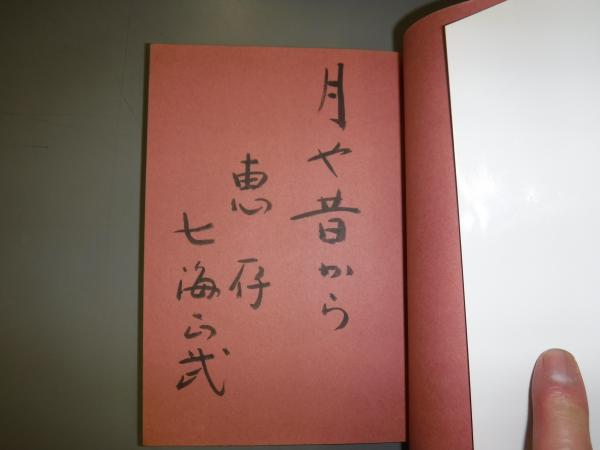 月や昔から
恵存
七海